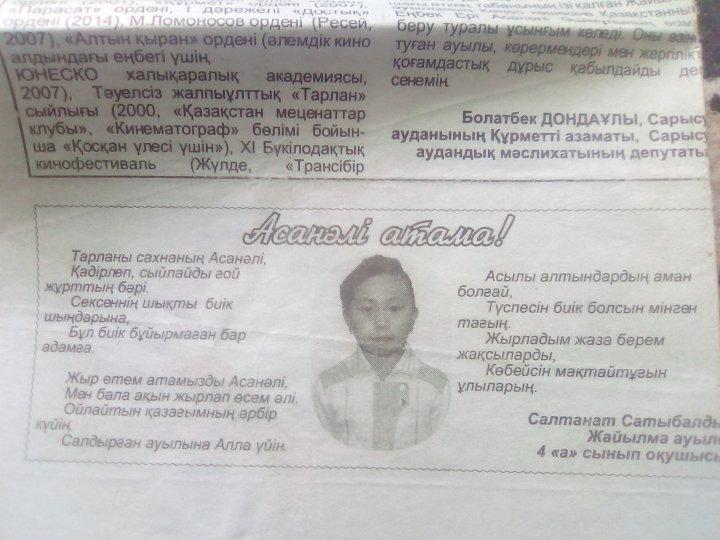 «Парасат» ордені, І дәрежелі «Достық»
ордені (2014), М.Ломоносов ордені (Ресей,
2007), «Алтын қыран» ордені (әлемдік кино
алдындағы еңбегі үшін,
ЮНЕСКО халықаралық академиясы,
2007), Тәуелсіз жалпыұлттық «Тарлан»
сыйлығы (2000, «Қазақстан меценаттар
клубы», «Кинематограф» бөлімі бойын-
ша «Қосқан үлесі үшін»), XI Бүкілодақтық
кинофестиваль (Жүлде, «Трансібір
Еңбек Ері
беру туралы ұсынғым келеді. Оны өзін
туған ауылы, көрермендері мен жергілікт
қоғамдастық дұрыс қабылдайды де
сенемін.
Болатбек ДОНДАҰЛЫ, Сарысу
ауданының Құрметті азаматы, Сарысу
аудандық мәслихатының депутаты
Асанәлі атама!
Тарланы сахнаның Асанәлі,
Қадірлеп, сыйлайды ғой
жұрттың бәрі.
Сексеннің шықты биік
шыңдарына,
Бұл биік бұйырмаған бар
адамға.
Жыр етем атамызды Асанәлі,
Мен бала ақын жырлап өсем әлі.
Ойлайтын қазағымның әрбір
күйін,
Салдырған ауылына Алла үйін.
Асылы алтындардың аман
болғай,
Түспесін биік болсын мінген
тағың.
Жырладым жаза берем
жақсыларды,
Көбейсін мақтайтұғын
ұлыларың.
Салтанат Сатыбалды
Жайылма ауылы
4 «а» сынып оқушысы